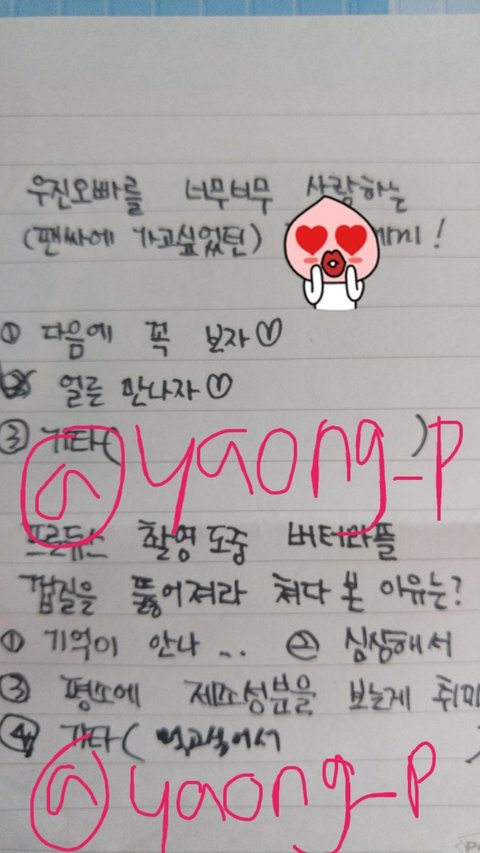 우진오빠를 너무너무 사랑하는
(팬싸에 가고싶었던) 에게!
① 다음에 꼭 보자♡
② 얼른 만나자♡
③ 기타( )
@yaong_p
프로듀스 촬영도중 버터와플
껍질을 뚫어져라 쳐다 본 이유는?
① 기억이 안나... ② 심심해서
③ 평소에 제조성분을 보는게 취미
④ 기타( 먹고싶어서 )
@yaong_p